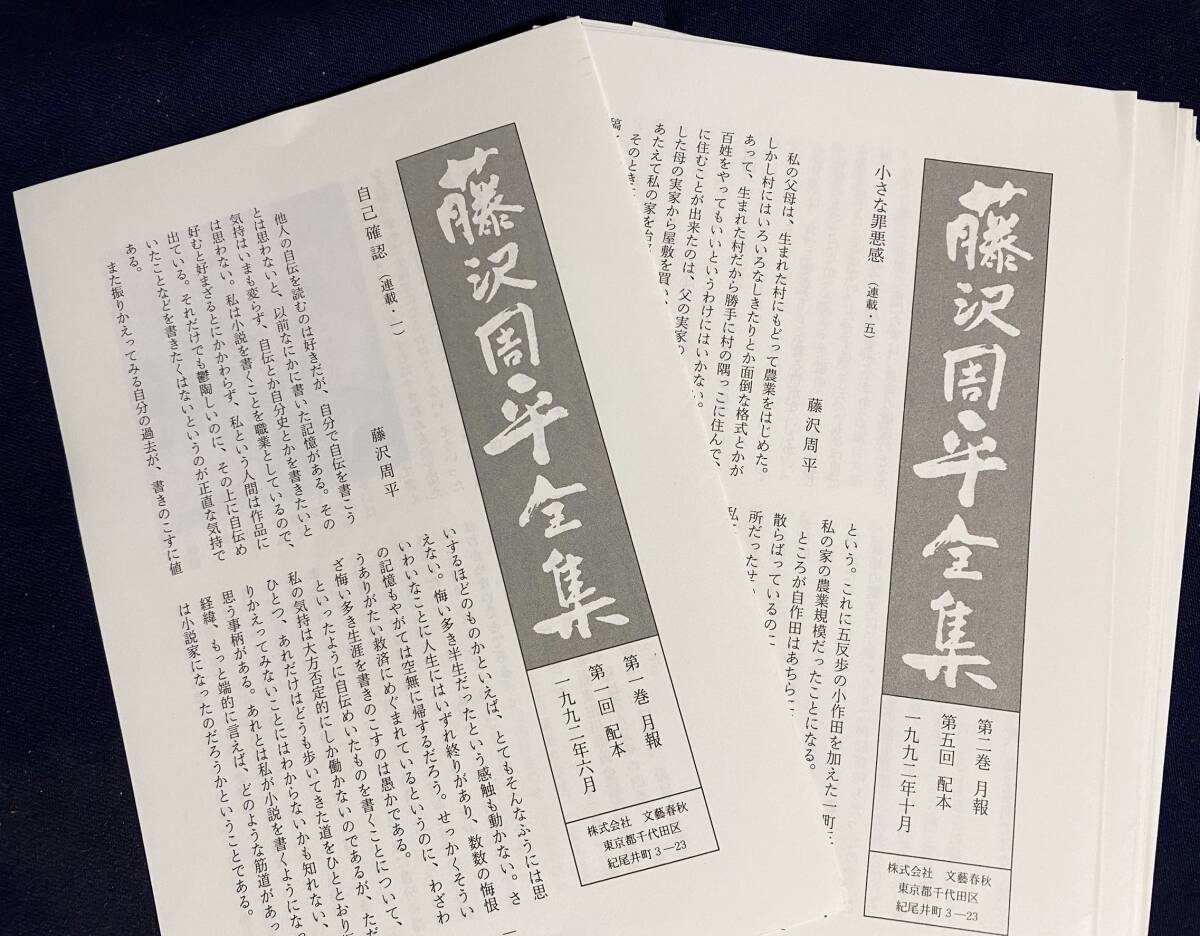 藤沢周平全集
第一巻 月報
第一回 配本
一九九二年六月
株式会社 文藝春秋
東京都千代田区
紀尾井町3―23
自己確認（連載・一）
藤沢周平
他人の自伝を読むのは好きだが、自分で自伝を書こう
とは思わないと、以前なにかに書いた記憶がある。その
気持はいまも変らず、自伝とか自分史とかを書きたいと
は思わない。私は小説を書くことを職業としているので、
好むと好まざるとにかかわらず、私という人間は作品に
出ている。それだけでも鬱陶しいのに、その上に自伝め
いたことなどを書きたくはないというのが正直な気持で
ある。
また振りかえってみる自分の過去が、書きのこすに値
いするほどのものかといえば、とてもそんなふうには思
えない。悔い多き半生だったという感触も動かない。さ
いわいなことに人生にはいずれ終りがあり、数数の悔恨
の記憶もやがては空無に帰するだろう。せっかくそうい
うありがたい救済にめぐまれているというのに、わざわ
ざ悔い多き生涯を書きのこすのは愚かである。
といったように自伝めいたものを書くことについて、
私の気持は大方否定的にしか働かないのであるが、ただ
ひとつ、あれだけはどうも歩いてきた道をひととおり
りかえってみないことにはわからないかも知れない、
思う事柄がある。あれとは私が小説を書くようになっ
経緯、もっと端的に言えば、どのような筋道があっ
は小説家になったのだろうかということである。
藤沢周平全集
第二巻 月報
第五回 配本
一九九二年十月
株式会社 文藝春秋
東京都千代田区
紀尾井町3―23
小さな罪悪感（連載・五）
藤沢周平
私の父母は、生まれた村にもどって農業をはじめた。
しかし村にはいろいろなしきたりとか面倒な格式とかが
あって、生まれた村だから勝手に村の隅っこに住んで、
百姓をやってもいいというわけにはいかない。
に住むことが出来たのは、父の実家の
した母の実家から屋敷を買い、
あたえて私の家を
そのとき
という。これに五反歩の小作田を加えた一町三
私の家の農業規模だったことになる。
ところが自作田はあちらこ
散らばっているのに
所だったせ